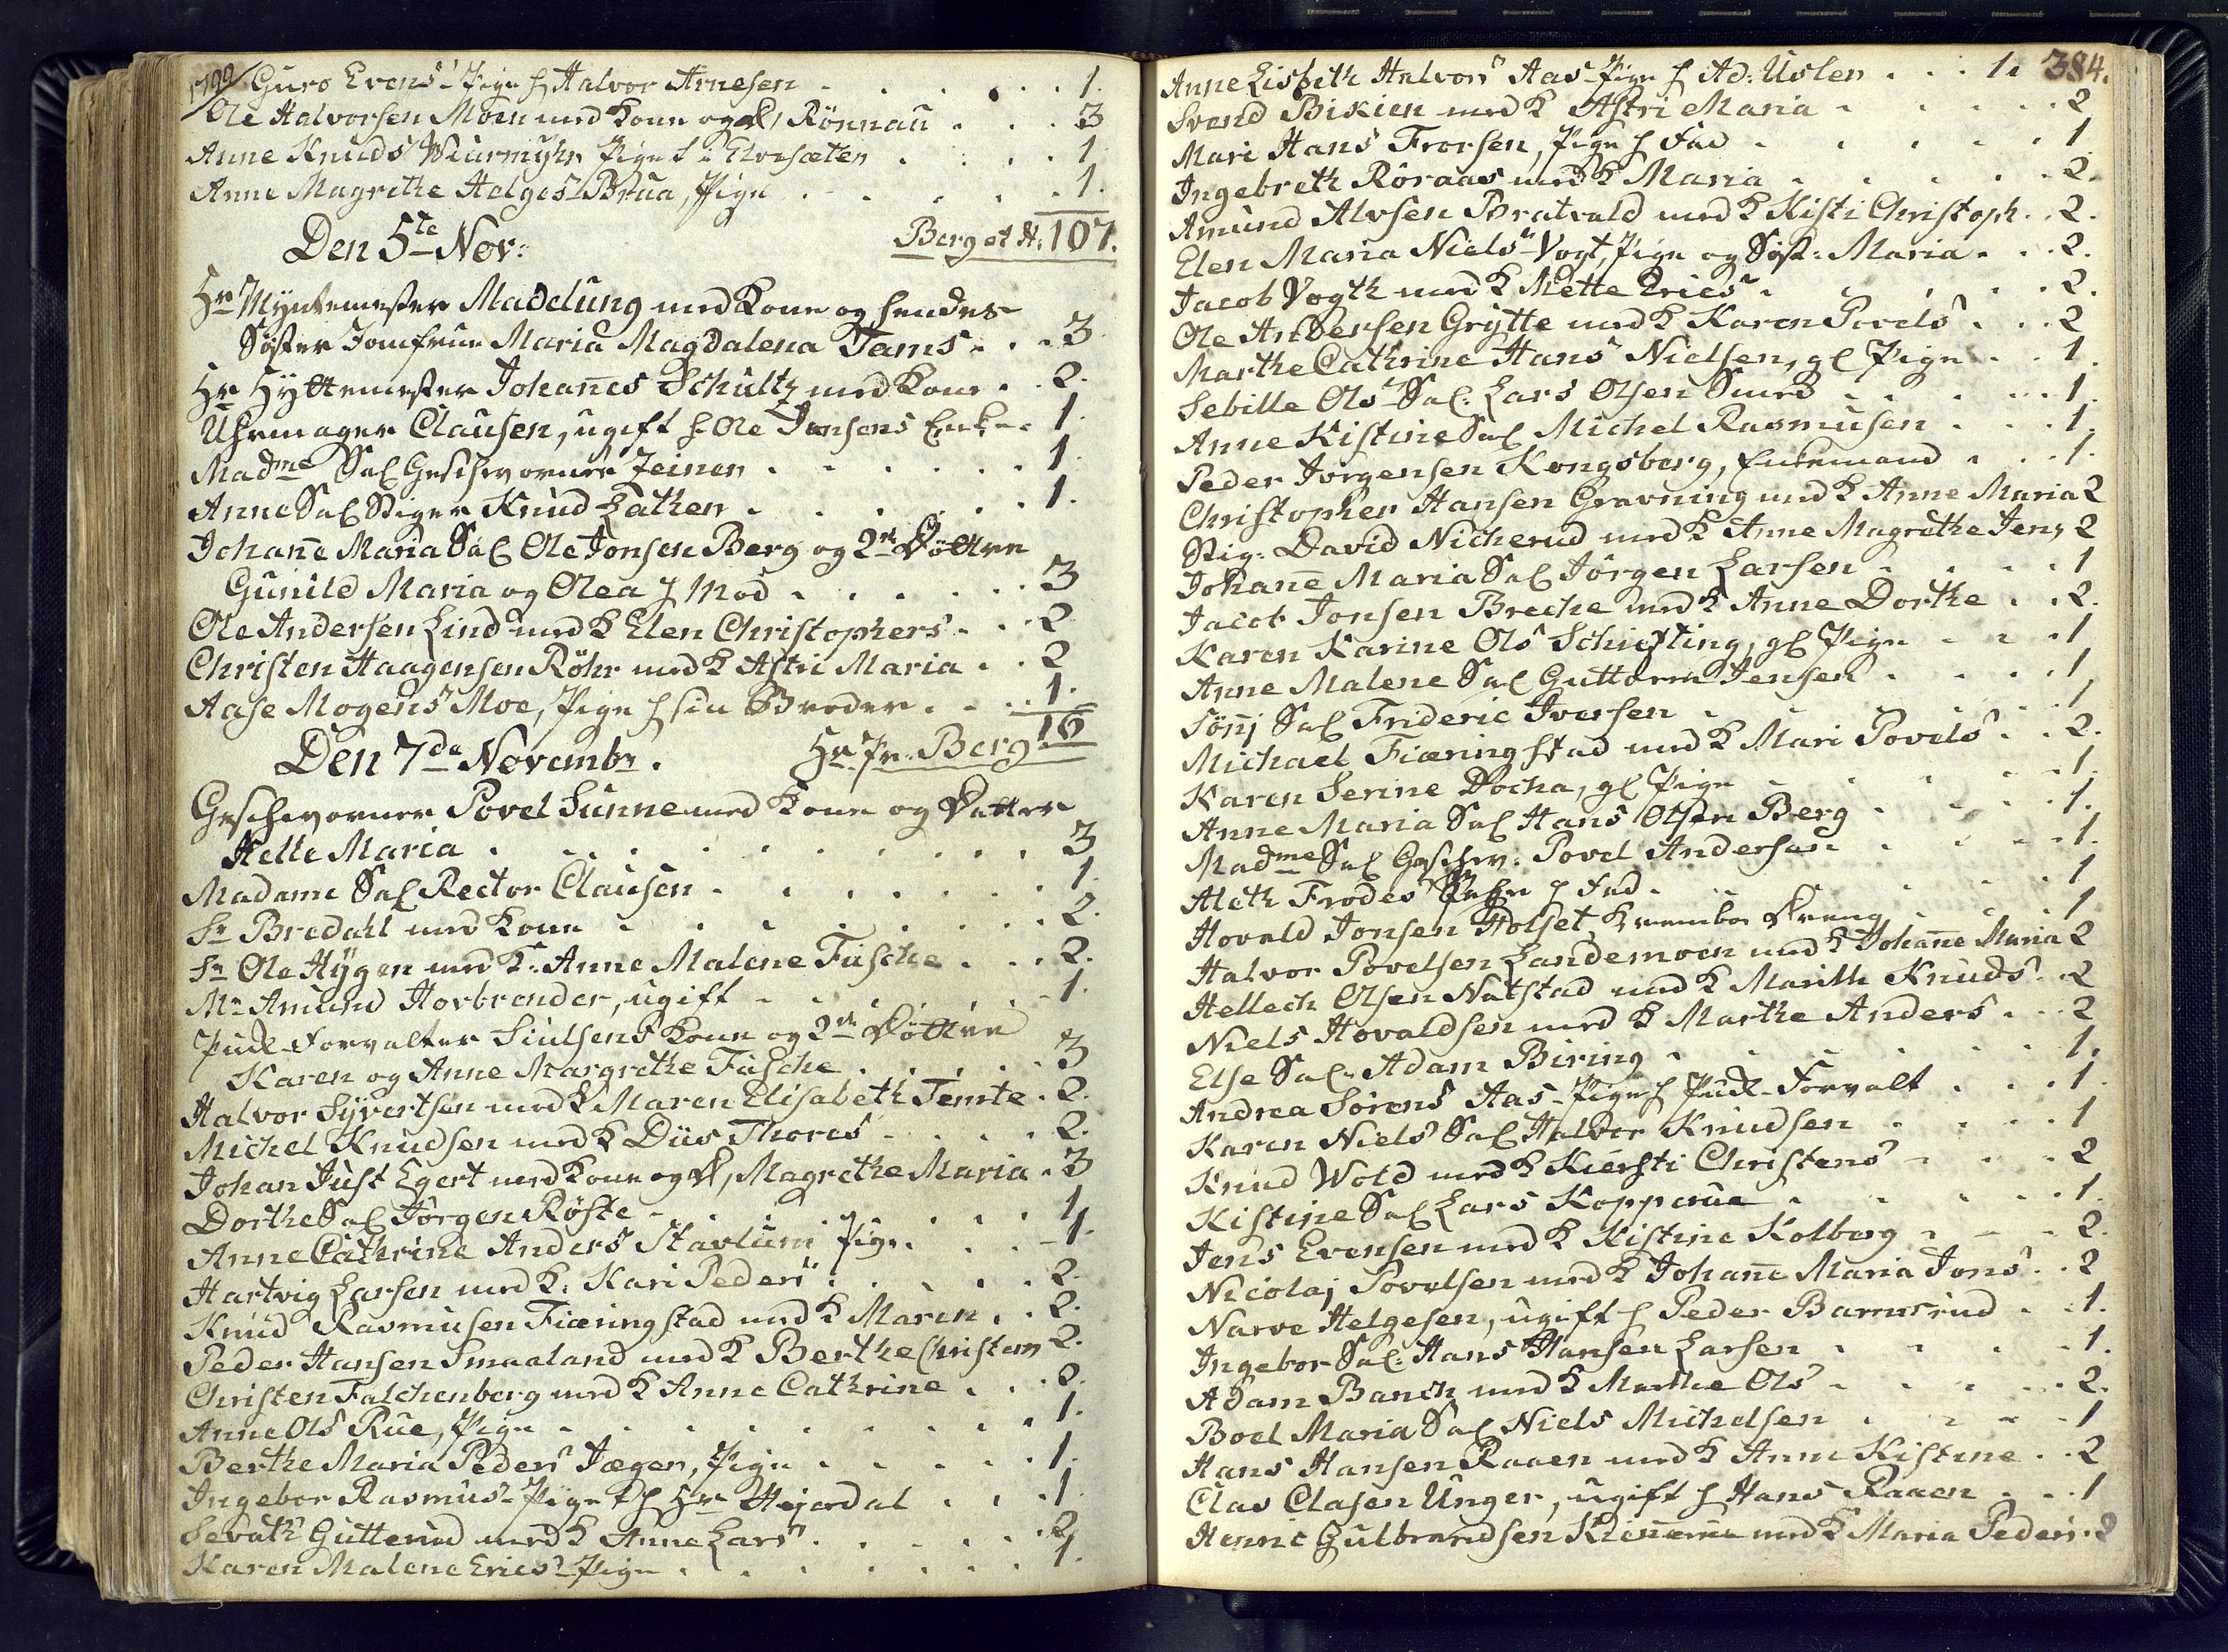 Guro Evens Pige h Halvor Arnesen . . . . 1.
Ole Halvorsen Moen med Kone og D, Rönnau . . . 3
Anne Knuds Pige Elvesæter . . . . 1.
Anne Magrethe Helges Brua, Pige . . . . 1.
Berg et H. 107.
Den 5te Nov:
Hr Myntemester Madelung med Kone og hendes
Søster Jomfrue Maria Magdalena Tams . . . 3
Hr Hyttemester Johañes Schultz med Kone . . 2.
Uhrmager Clausen, ugift h Ole Jonsens Enke . 1.
Madme Sal Geschworner Zeiner . . . . . 1.
Anne Sal Stiger Knud Lathen . . . . . 1.
Johañe Maria Sal Ole Jonsen Berg og 2de Döttre
Gunild Maria og Olea h Mod . . . . . 3
Ole Andersen Lind med K Elen Christophers . . 2
Christen Haagensen Röhr med K Astri Maria . . 2
Aase Mogens Moe, Pige h sin Broder . . . 1.
16
Hr Pr. Berg
Den 7de Novembr.
Geschworner Povel Sunne med Kone og Datter
Helle Maria . . . . . . . . 3
Madame Sal Rector Clausen . . . . . . 1.
Sr Bredahl med Kone . . . . . . . 2.
Sr Ole Hygen med K. Anne Malene Fusche . . . 2.
Mr Amund Hovbrender, ugift . . . . . 1.
Forvalter Siulsens Kone og 2de Döttre
Karen og Anne Margrethe Fusche . . . . . 3
Halvor Syvertsen med K Maren Elisabeth Temte . 2.
Michel Knudsen med K Diis Thores . . . . 2.
Johan Just Egert med Kone og D, Magrethe Maria . 3
Dorthe Sal Jörgen Röste . . . . . . 1.
Anne Cathrine Anders Stavlum Pige . . . 1.
Hartvig Larsen med K. Kari Peders . . . . 2.
Knud Rasmusen Fiæringstad med K Maren . . 2.
Peder Hansen Smaaland med K Berthe Christens 2.
Christen Falchenberg med K Anne Cathrine . . 2.
Anne Ols Rue, Pige . . . . . . . 1.
Berthe Maria Peders Jæger, Pige . . . . 1.
Ingebor Rasmus Pige h Hr Hejerdal . . . 1.
Sevath Gutterud med K Anne Lars . . . . 2
Karen Malene Erics Pige . . . . . . 1.
Anne Lisbeth Halvors Aas Pige h Ad: Usler . . . 1. 384.
Svend Bikien med K Astri Maria . . . . 2
Mari Hans Frorsen, Pige h Fad . . . . . 1
Ingebreth Röraas med K Maria . . . . . 2.
Amund Alvsen Bratvald med K Kisti Christoph . . 2.
Elen Maria Niels Vogt, Pige og Søst: Maria . . . 2.
Jacob Vogth med K Mette Erics . . . . . 2.
Ole Andersen Grytte med K Karen Povels . . . 2
Marthe Cathrine Hans Nielsen, gl Pige . . . 1.
Sebille Ols Sal: Lars Olsen Smed . . . . 1.
Anne Kistine Sal Michel Rasmusen . . . . 1.
Peder Jörgensen Kongsberg, Enkemand . . . 1.
Christopher Hansen Gravning med K Anne Maria 2
Stig: David Nicherud med K Anne Magrethe Jens 2
Johañe Maria Sal Jörgen Larsen . . . . 1
Jacob Jonsen Breche med K Anne Dorthe . . 2.
Karen Karine Ols Schiefting, gl Pige . . . 1
Anne Malene Sal Guttorm Jensen . . . . 1
Söñj Sal Frideric Iversen . . . . . . 1
Michael Fiæringstad med K Mari Povels . . 2.
Karen Serine Docha, gl Pige . . . . . 1.
Anne Maria Sal Hans Olsen Berg . . . . 1.
Madme Sal Geschw: Povel Andersen . . . . 1.
Aleth Frodes Pige h Fad . . . . . . 1
Hovald Jonsen Holset, Dreng . . . . 1
Halvor Povelsen Landemoen med K Johañe Maria 2
Hellech Olsen Natstad med K Marthe Knuds . . 2
Niels Hovaldsen med K Marthe Anders . . . 2
Else Sal. Adam Biring . . . . . . 1.
Andrea Sörens Aas Pige h Forvalt . . . 1.
Karen Niels Sal Halvor Knudsen . . . . 1
Knud Wold med K Kiersti Christens . . . 2
Kistine Sal Lars Kopperue . . . . . 1.
Jens Evensen med K Kistine Kolberg . . . 2.
Nicolaj Povelsen med K Johañe Maria Jons . . 2
Narve Helgesen, ugift h Peder Bamerud . . 1.
Ingebor Sal: Hans Hansen Larsen . . . . 1.
Adam Banch med K Marthe Ols . . . . 2.
Boel Maria Sal Niels Michelsen . . . . 1
Hans Hansen Raaen med K Anne Kistine . . 2
Clas Clasen Unger, ugift h Hans Raaen . . . 1
Henric Gulbrandsen med K Maria Peders . 2